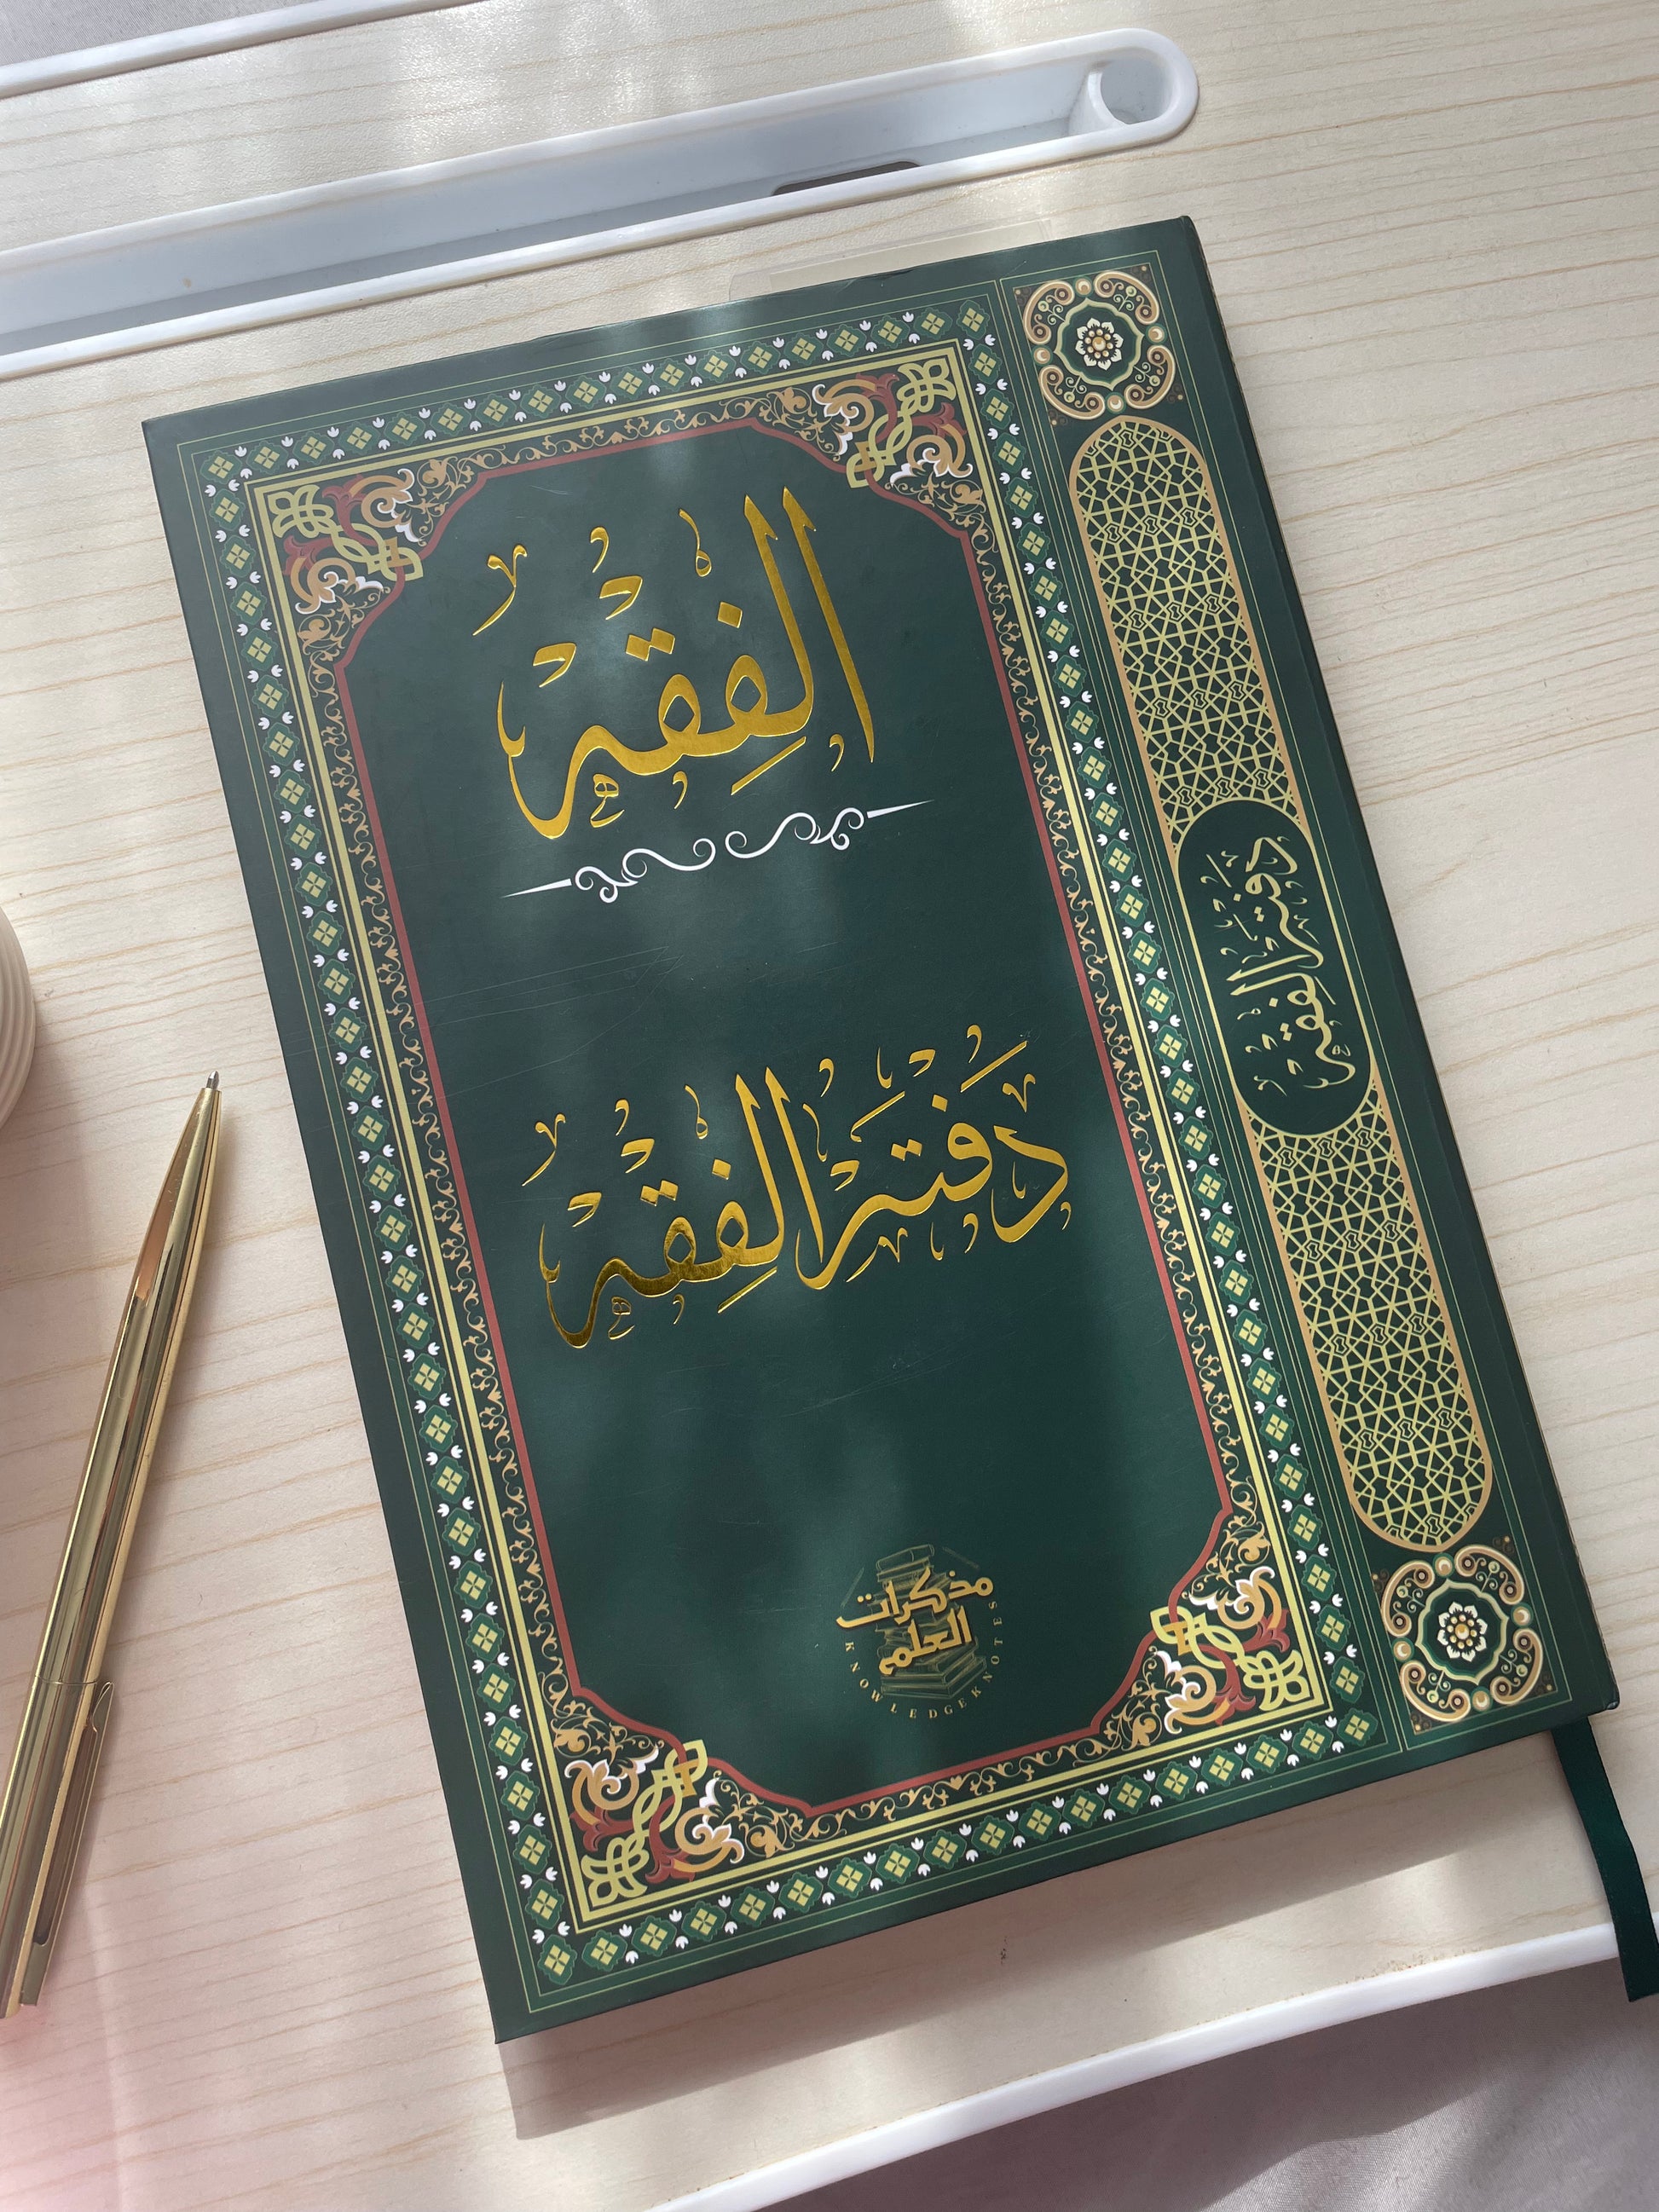 الفِقْه
دَفْتَرُ الفِقْه
مذكرات
العلم
KNOWLEDGEKNOTES
دَفْتَرُ الفِقْه